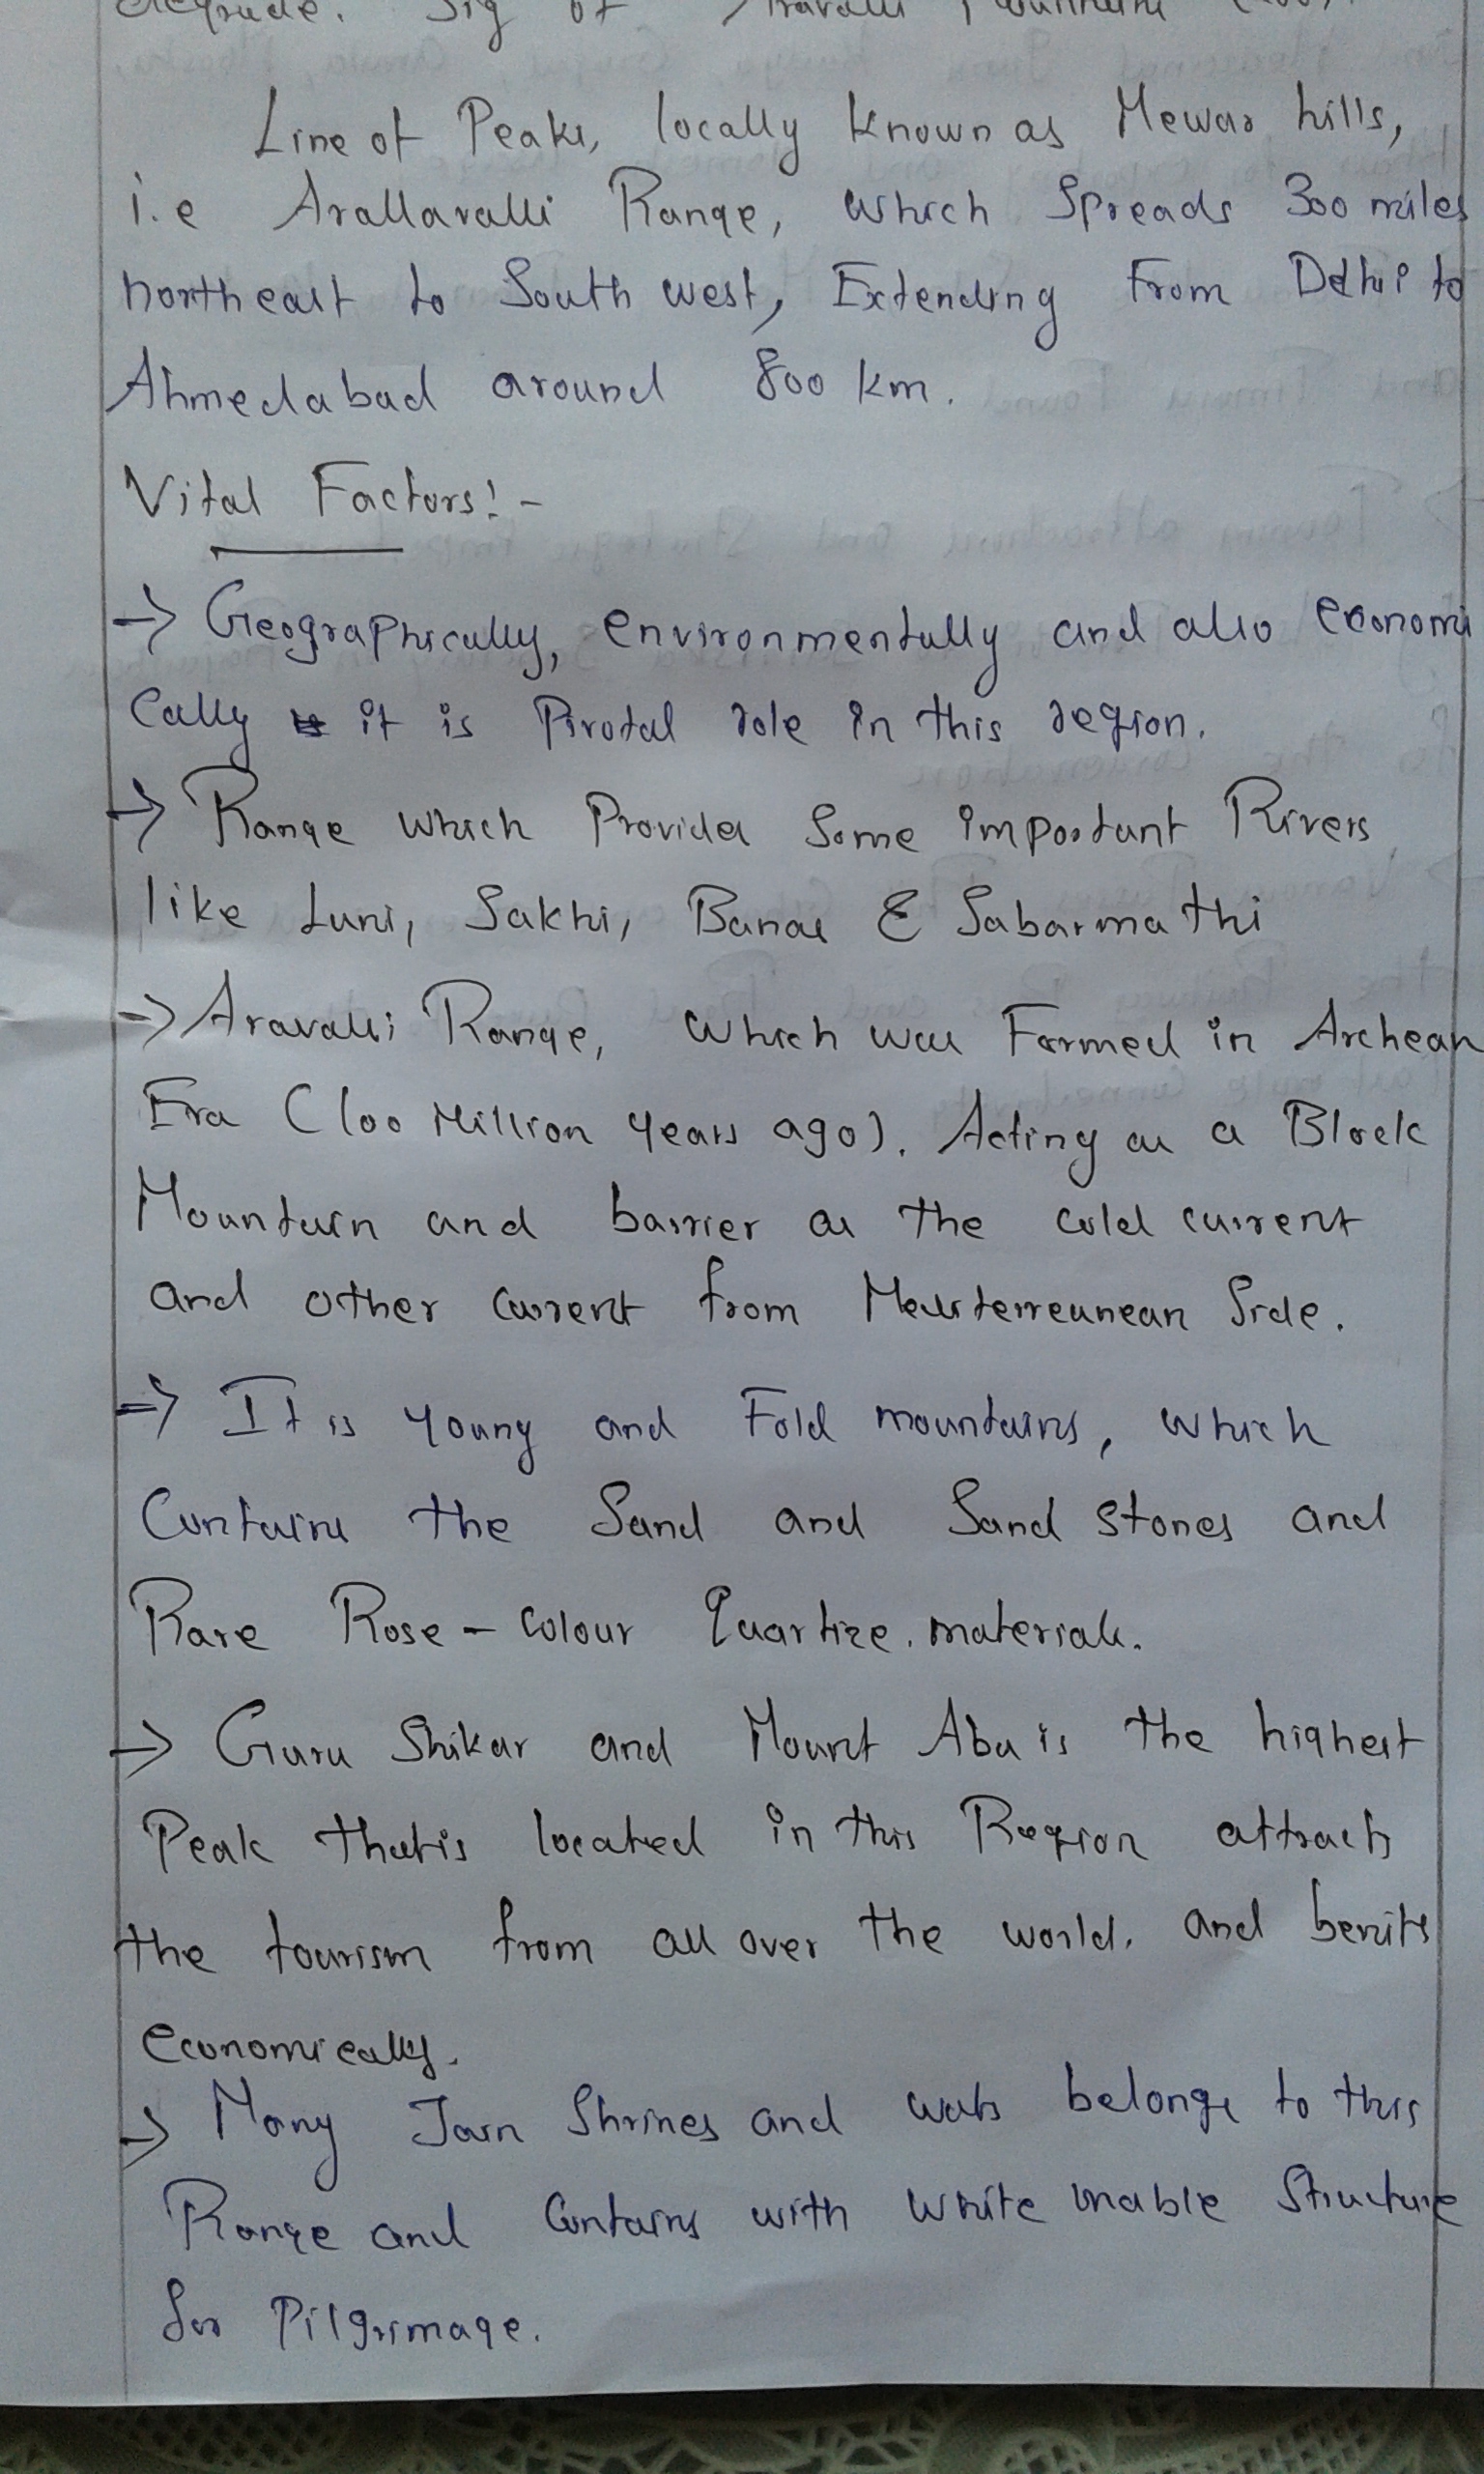 degrade. Sig of Aravalli
Line of Peaks, locally known as Mewar hills,
i.e Arallavalli Range, which Spreads 300 miles
northeast to South west, Extending From Delhi to
Ahmedabad around 800 km.
Vital Factors:-
→ Geographically, environmentally and also economi
cally it is Pivotal role in this region.
→ Range which Provides Some important Rivers
like Luni, Sakhi, Banas & Sabarmathi
→ Aravalli Range, which was Formed in Archean
Era (100 Million years ago). Acting as a Block
Mountain and barrier as the cold current
and other current from Mediterreanean Side.
→ It is young and Fold mountains, which
Contains the Sand and Sand stones and
Rare Rose-colour Quartize materials.
→ Guru Shikar and Mount Abu is the highest
Peak that is located in this Region attracts
the tourism from all over the world. and benifits
economically.
→ Many Jain Shrines and belongs to this
Range and Contains with white marble Structure
for Pilgrimage.